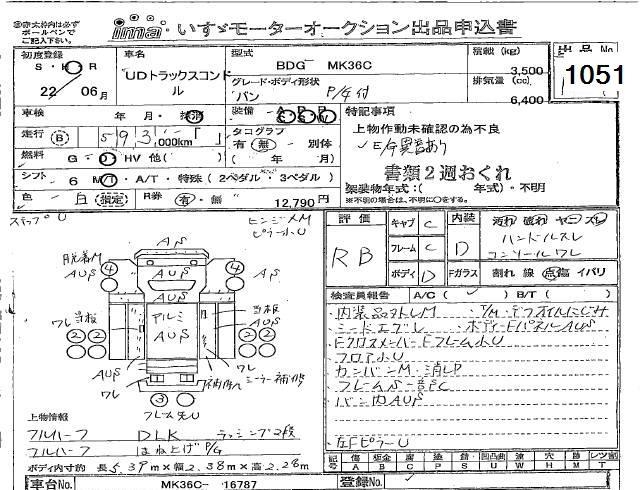 ima・いすゞモーターオークション出品申込書
初度登録
22 06月
車名
UDトラックスコンドル
型式
BDG MK36C
グレード・ボディ形状
バン P/G付
積載(kg)
3,500
排気量(cc)
6,400
出品No
1051
車検 年・月・抹消
装備
走行 B 593,000km
タコグラフ
有 無 ・別体
( 年 月)
特記事項
上物作動未確認の為不良
E/G異音あり
書類2週おくれ
架装物年式:( 年式)・不明
※不明の場合は、不明に○をする。
燃料 G・D・HV 他( )
シフト 6 M/T・A/T・特殊(2ペダル・3ペダル)
色 白(指定) R券 有・無 12,790円
ステップU
評価
RB
キャブ C
フレーム C
ボディ D
内装 D
汚れ 破れ ヤニ スレ
ハンドルスレ
コンソールワレ
Fガラス 割れ 線 点傷 イバリ
検査員報告 A/C( ) B/T( )
・内装品ストレM
・シートエグレ
・ボディーFパネルAUS
・FクロスメンバーFフレーム小U
・フロア小U
・カンバンM・消しP
・フレームS一部C
・バン内AUS
・左FピラーU
脱着M
AUS
AS
AUS
AUS
AS
ワレ 当板
当板
AUS
アルミ
AUS
AUS
ワレ
ワレ
補修
ミラー補修
フレーム先U
上物情報
フルハーフ DLK ラッシング2段
フルハーフ はね上げP/G
ボディ内寸約 長5.39m×幅2.38m×高2.28m
記号 傷 A 板金 B 腐 C 塗 P 錆 S 凹凸曲 U 波 W 穴 H 跡 M レツ割 T
車台No. MK36C- 16787
登録No.